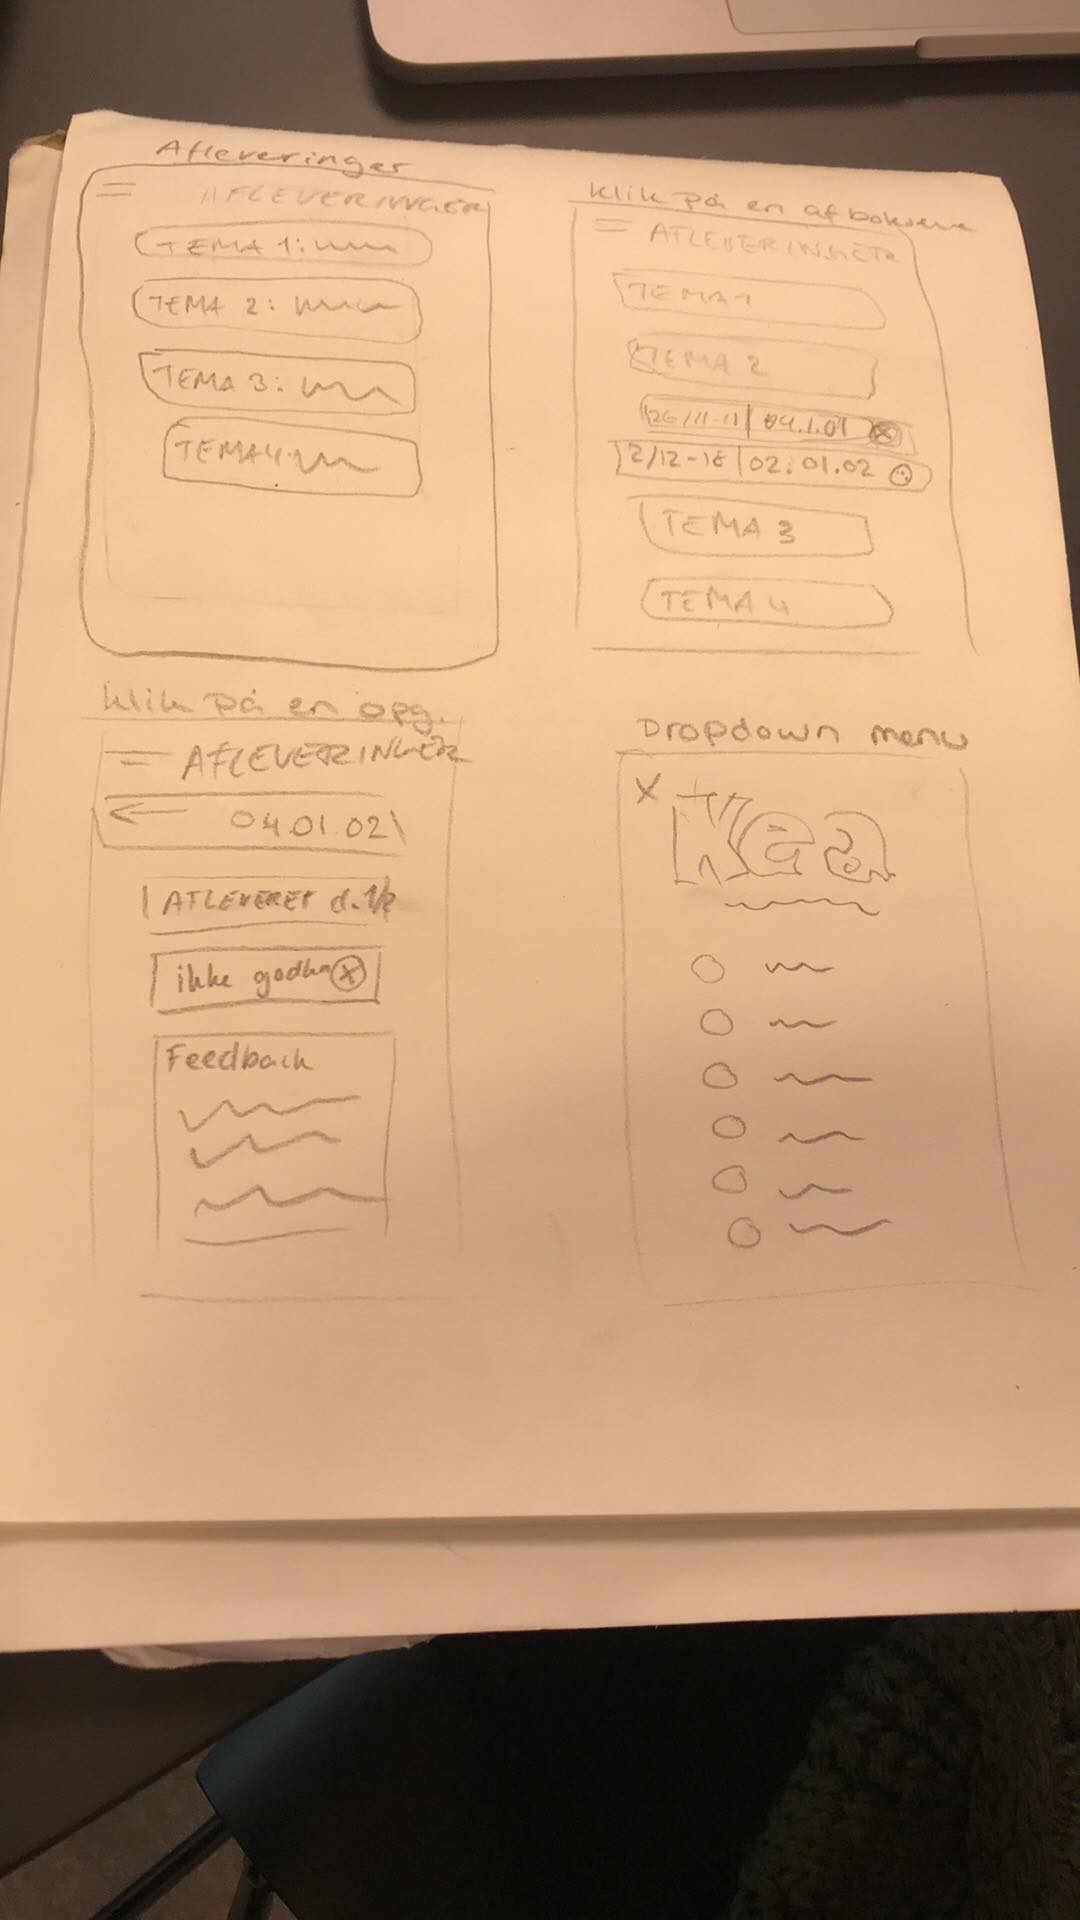 Afleveringer
AFLEVERINGER
TEMA 1:
TEMA 2:
TEMA 3:
TEMA 4:
Klik på en af boksene
AFLEVERINGER
TEMA 1
TEMA 2
26/11-
2/12-18 | 02.01.02
TEMA 3
TEMA 4
Klik på en opg.
AFLEVERINGER
04.01.02
AFLEVERET d.
ikke godk
Feedback
Dropdown menu
X
Kea